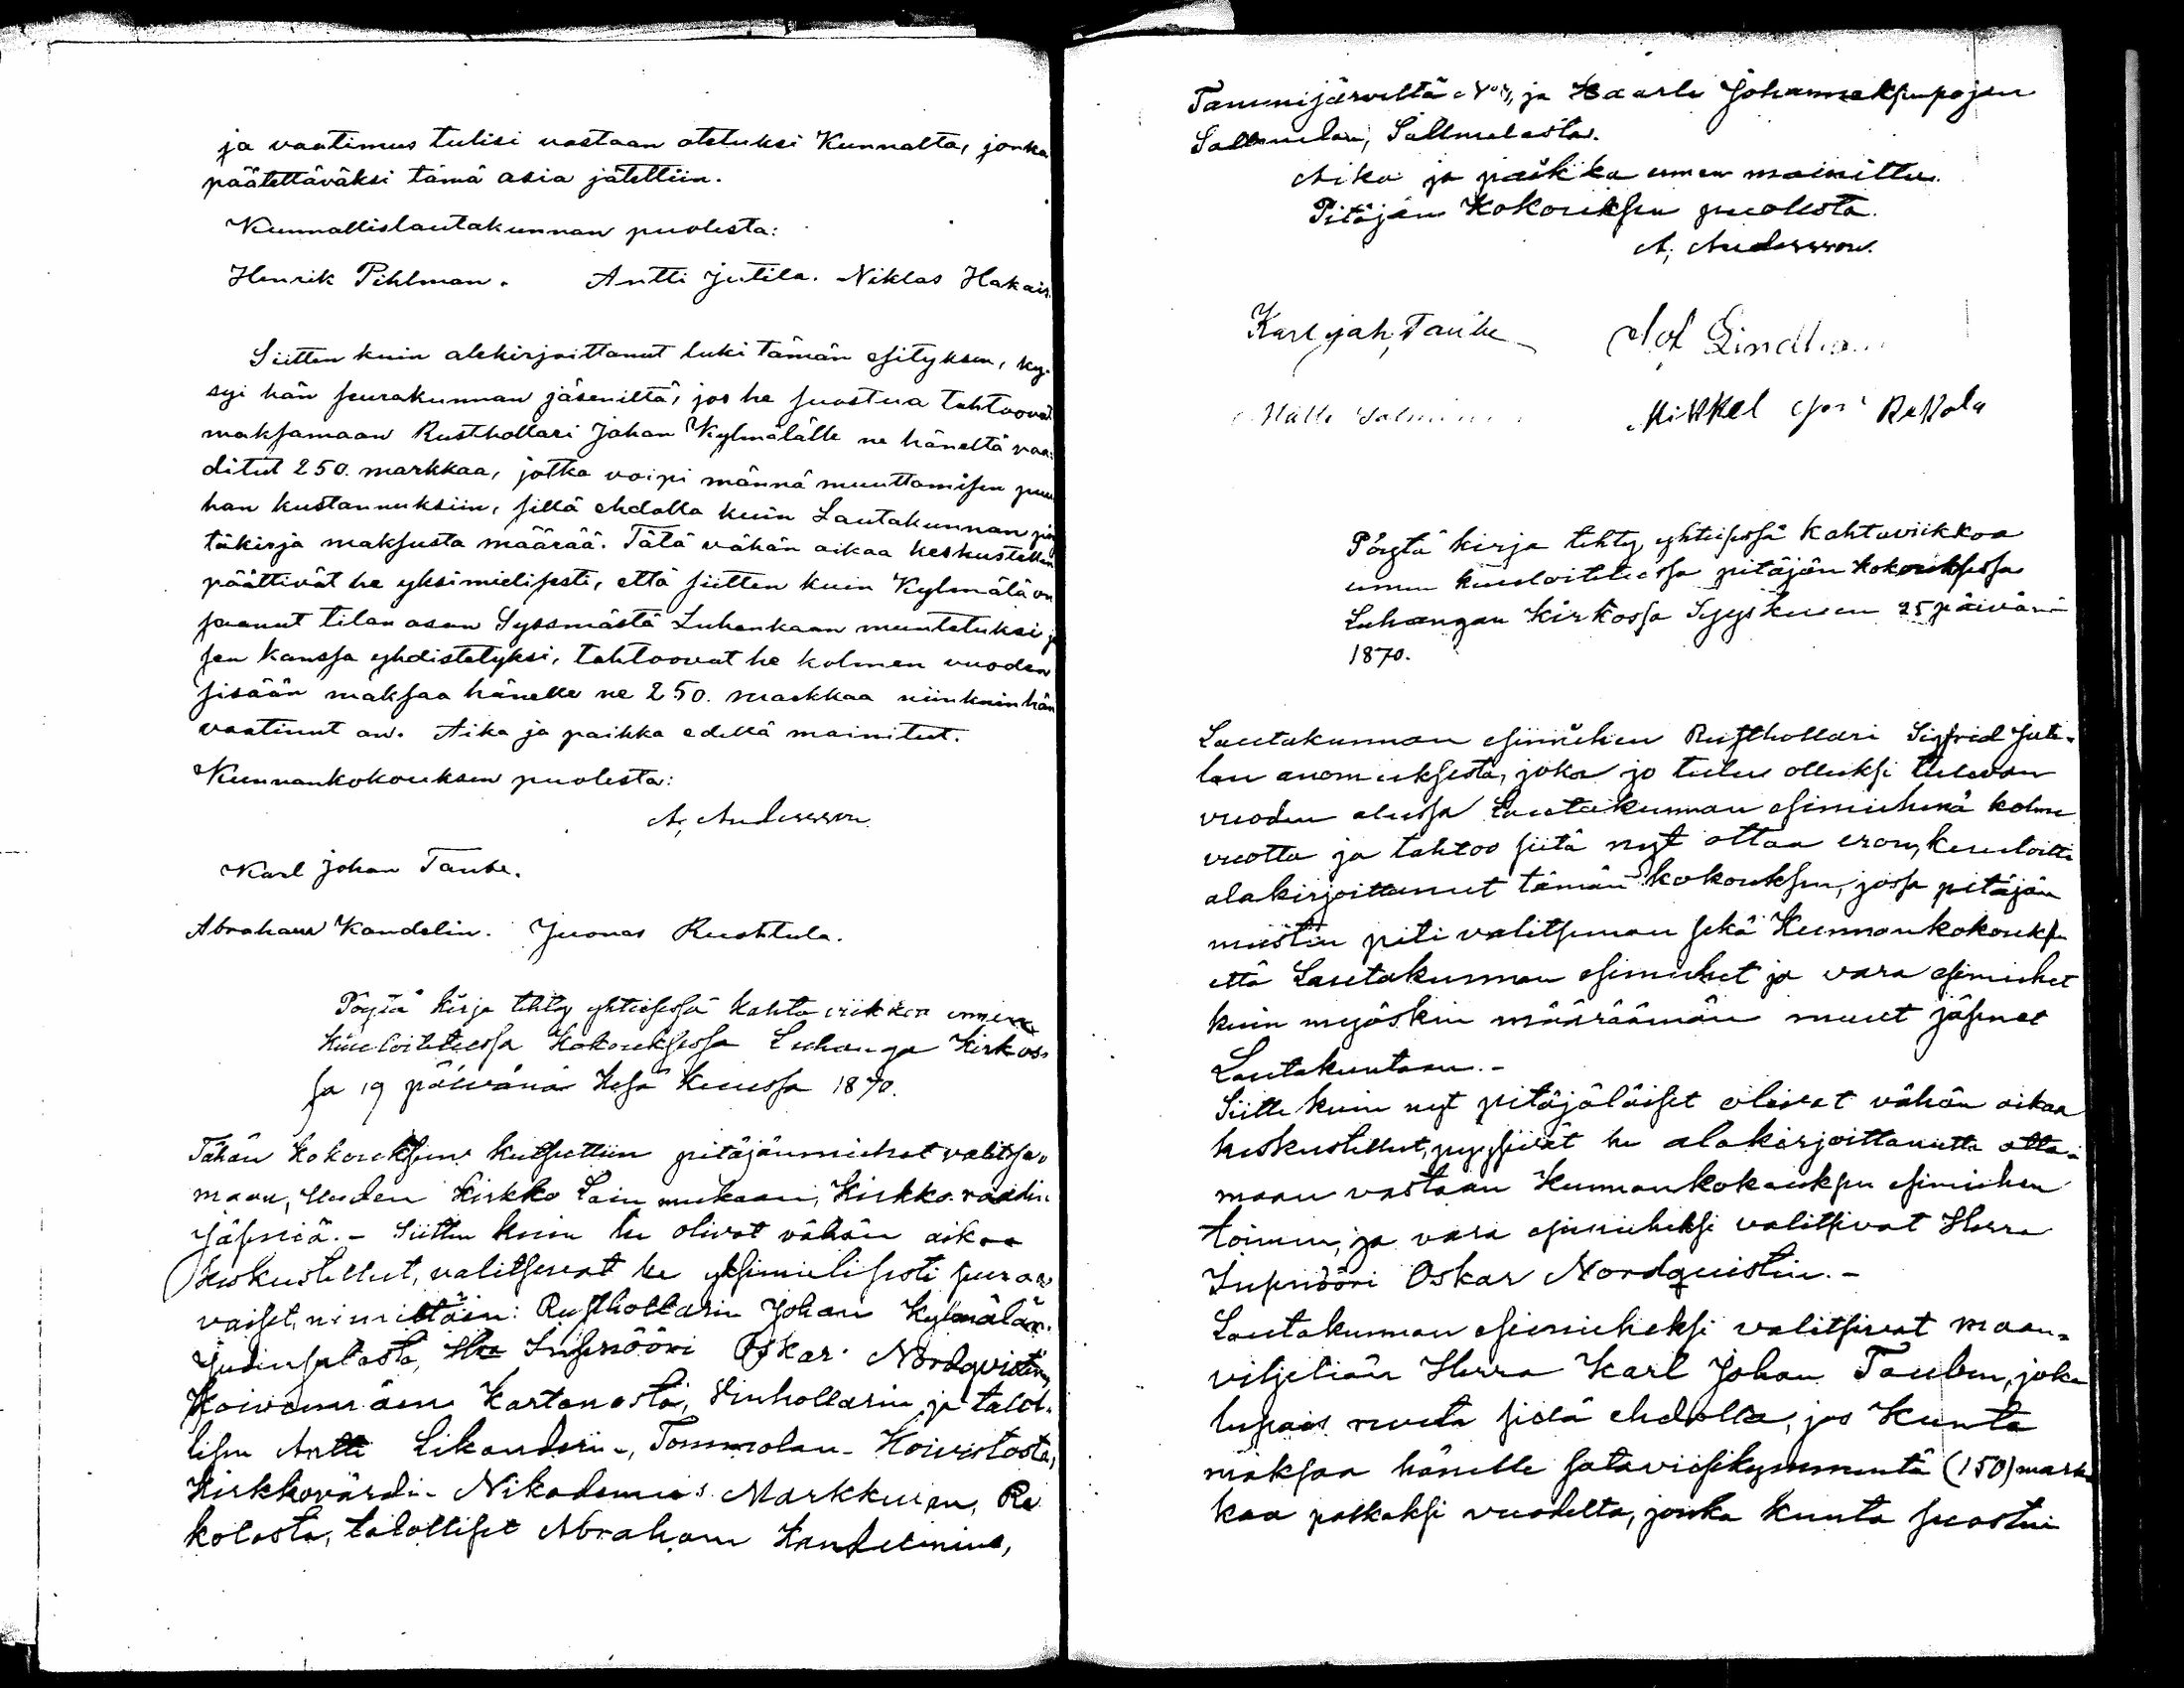 ja vaatimus tulisi vastaan otetuksi Kunnalta, jonka
päätettäväksi tämä asia jätettiin.
Kunnallislautakunnan puolesta:
Henrik Pihlman. Antti Jutila. Niklas Hakais
Siitten kuin alekirjoittanut luki tämän esityksen, ky-
syi hän seurakunnan jäseniltä, jos he suostua tahtoovat
maksamaan Rusthollari Johan Kylmälälle ne häneltä vaa-
ditut 250. markkaa, jotka voipi männä muuttamisen puu
han kustannuksiin, sillä ehdolla kuin Lautakunnan pöy
täkirja maksusta määrää. Tätä vähän aikaa keskustellen
päättivät he yksimielisesti, että siitten kuin Kylmälä on
saanut tilan osan Syssmästä Luhankaan muutetuksi ja
sen kanssa yhdistetyksi, tahtoovat he kolmen vuoden
sisään maksaa hänelle ne 250. markkaa niinkuin hän
vaatinut on. Aika ja paikka edellä mainitut.
Kunnankokouksen puolesta:
A, Andersson
Karl Johan Taube.
Abraham Kandelin. Juonas Ruohtula.
Pöytä kirja tehty yhteisessä kahta viikkoa ennen
kuuloitetussa Kokouksessa Luhanga Kirkos-
sa 19 päivänä Kesä Kuussa 1870.
Tähän Kokoukseen kutsuttiin pitäjänmiehet valitse-
maan, uuden Kirkko Lain mukaan, Kirkko raadin
jäseniä. - Siitten kuin he olivat vähän aikaa
keskustellut, valitsevat he yksimielisesti seuraa-
vaiset, nimittäin: Rusthollarin Johan Kylmälän
Judinsalosta, Insinööri Oskar Nordqvistin,
Koivumäen Kartanosta, ja talol-
lisen Antti Likanderin, Tommolan Koivistosta,
Kirkkovärdi Nikodemus Markkusen, Re
kolasta, talolliset Abraham Kandelinin,
Tammijärveltä No, ja Kaarle Johanneksenpojan
Sallmelan, Sallmelasta.
Aika ja paikka ennen mainittu.
Pitäjän Kokouksen puolesta.
A, Andersson.
Karl joh, Taube Lindh
Salmin Mikkel Rekola
Pöytä kirja tehty yhteisessä kahtaviikkoa
ennen kuuloitetussa pitäjän kokouksessa
Luhangan Kirkossa Syyskuun 25 päivänä
1870.
Lautakunnan esimiehen Rusthollari Sigfrid Juti-
lan anomuksesta, joka jo tulee olleeksi tulevan
vuoden alussa Lautakunnan esimiehenä kolme
vuotta ja tahtoo siitä nyt ottaa eron, kuuloitti
alakirjoittanut tämän kokouksen, jossa pitäjän
miesten piti valitseman sekä Kunnankokouksen
että Lautakunnan esimiehet ja vara esimiehet
kuin myöskin määräämän muut jäsenet
Lautakuntaan. -
Siitte kuin nyt pitäjäläiset olivat vähän aikaa
keskustellut, pyysivät he alakirjoittanutta otta-
maan vastaan Kunnankokouksen esimiehen
toimen, ja vara esimieheksi valitsivat Herra
Insinööri Oskar Nordquistin. -
Lautakunnan esimieheksi valitsivat maan-
viljeliän Herra Karl Johan Tauben, joka
lupais ruveta sillä ehdolla, jos Kunta
maksaa hänelle sataviisikymmentä (150) mark
kaa palkaksi vuodelta, jonka Kunta suostui